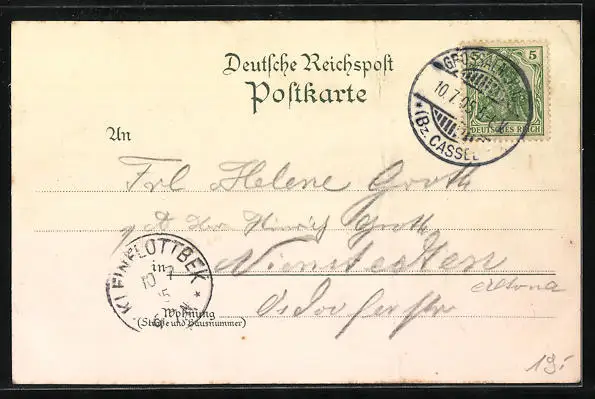 Deutsche Reichspost
Postkarte
5
DEUTSCHES REICH
GROSSALMERODE
10.7.05
*(Bz. CASSEL)
An
Frl Helene Groth
p A Herrn Hinrich Groth
in Nienstedten
Altona
Wohnung
(Straße und Hausnummer)
Osdorferstr
KLEINFLOTTBEK
10 7
5
N
19.-